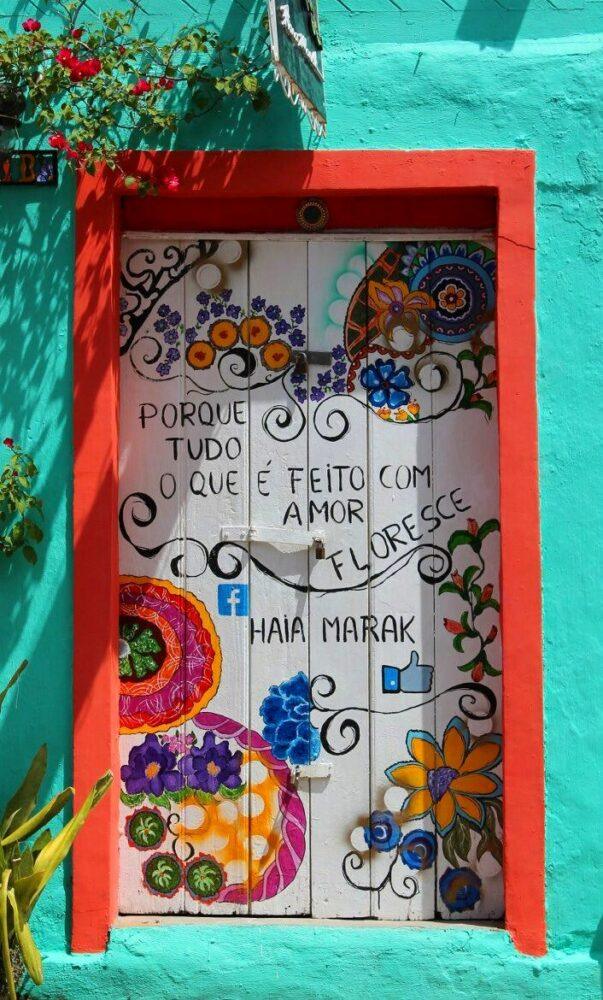 PORQUE
TUDO
O QUE É FEITO COM
AMOR
FLORESCE
f
HAIA MARAK